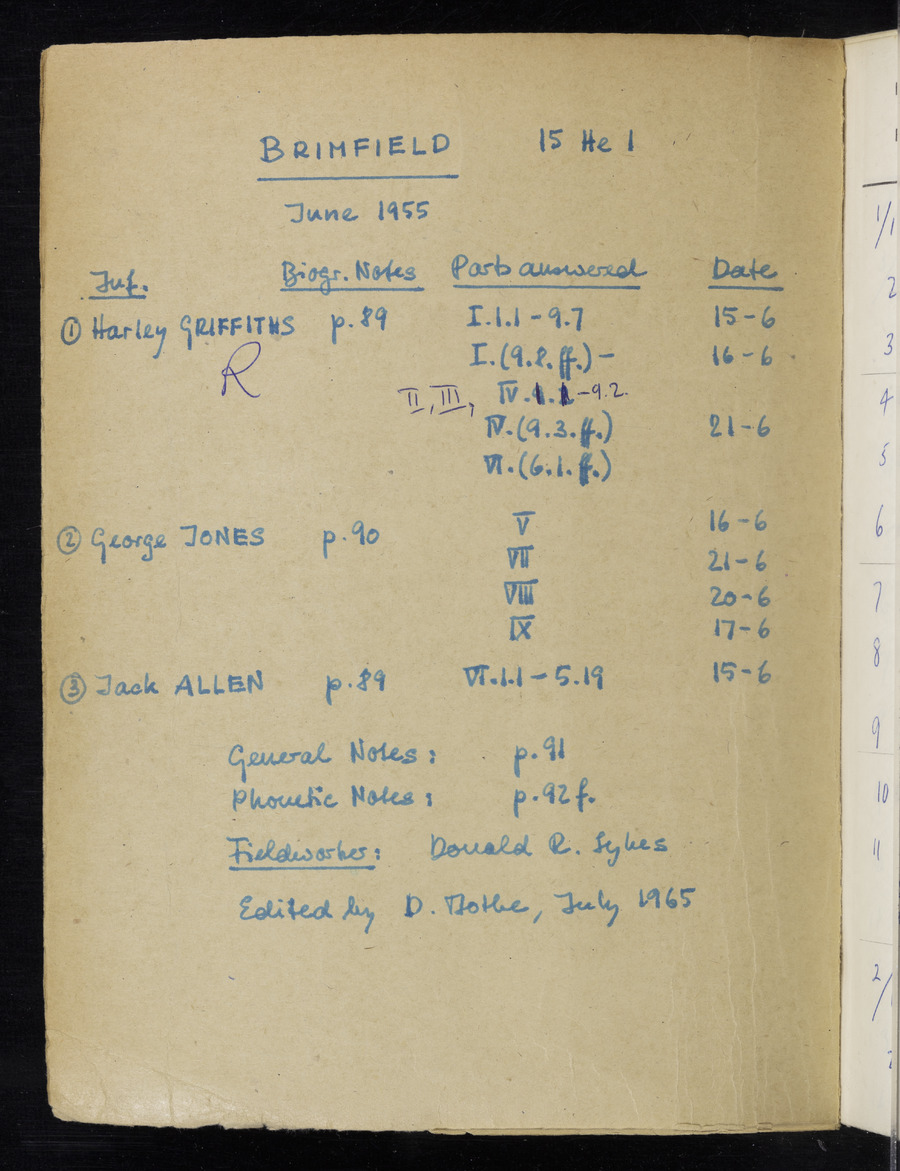 BRIMFIELD 15 He 1
June 1955
Inf. Biogr. Notes Parts answered Date
① Harley GRIFFITHS p. 89 I.1.1 - 9.7 15-6
R I.(9.8.ff.) - 16-6
II, III, IV.1.1-9.2.
IV.(9.3.ff.) 21-6
VI.(6.1.ff.)
② George JONES p. 90 V 16-6
VII 21-6
VIII 20-6
IX 17-6
③ Jack ALLEN p. 89 VI.1.1 - 5.19 15-6
General Notes: p. 91
Phonetic Notes: p. 92 f.
Fieldworker: Donald R. Sykes
Edited by D. , July 1965
1/1
2
3
4
5
6
7
8
9
10
11
2/